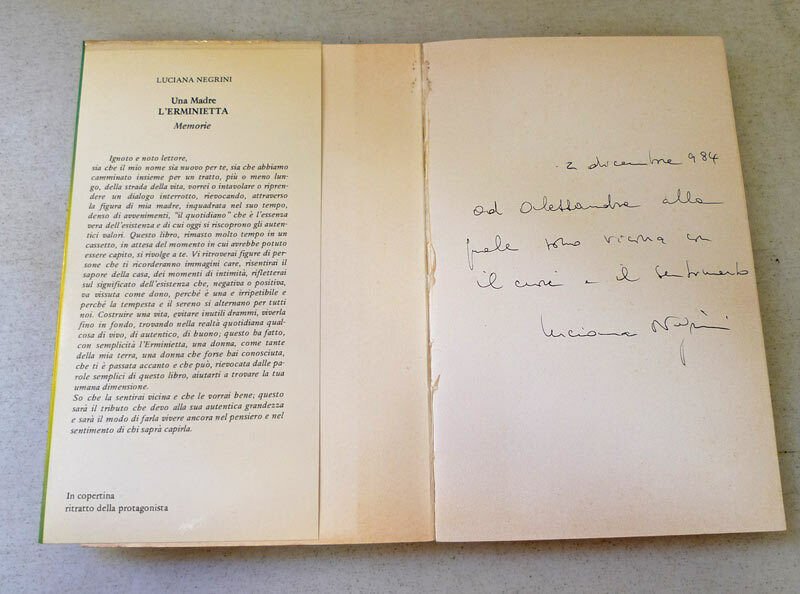 LUCIANA NEGRINI
Una Madre
L'ERMINIETTA
Memorie
Ignoto e noto lettore,
sia che il mio nome sia nuovo per te, sia che abbiamo
camminato insieme per un tratto, più o meno lun-
go, della strada della vita, vorrei o intavolare o ripren-
dere un dialogo interrotto, rievocando, attraverso
la figura di mia madre, inquadrata nel suo tempo,
denso di avvenimenti, "il quotidiano" che è l'essenza
vera dell'esistenza e di cui oggi si riscoprono gli auten-
tici valori. Questo libro, rimasto molto tempo in un
cassetto, in attesa del momento in cui avrebbe potuto
essere capito, si rivolge a te. Vi ritroverai figure di per-
sone che ti ricorderanno immagini care, risentirai il
sapore della casa, dei momenti di intimità, rifletterai
sul significato dell'esistenza che, negativa o positiva,
va vissuta come dono, perché è una e irripetibile e
perché la tempesta e il sereno si alternano per tutti
noi. Costruire una vita, evitare inutili drammi, viverla
fino in fondo, trovando nella realtà quotidiana qual-
cosa di vivo, di autentico, di buono; questo ha fatto,
con semplicità l'Erminietta, una donna, come tante
della mia terra, una donna che forse hai conosciuta,
che ti è passata accanto e che può, rievocata dalle pa-
role semplici di questo libro, aiutarti a trovare la tua
umana dimensione.
So che la sentirai vicina e che le vorrai bene; questo
sarà il tributo che devo alla sua autentica grandezza
e sarà il modo di farla vivere ancora nel pensiero e nel
sentimento di chi saprà capirla.
In copertina
ritratto della protagonista
2 dicembre 984
ad Alessandra alla
quale sono vicina con
il cuore e il sentimento
Luciana Negrini